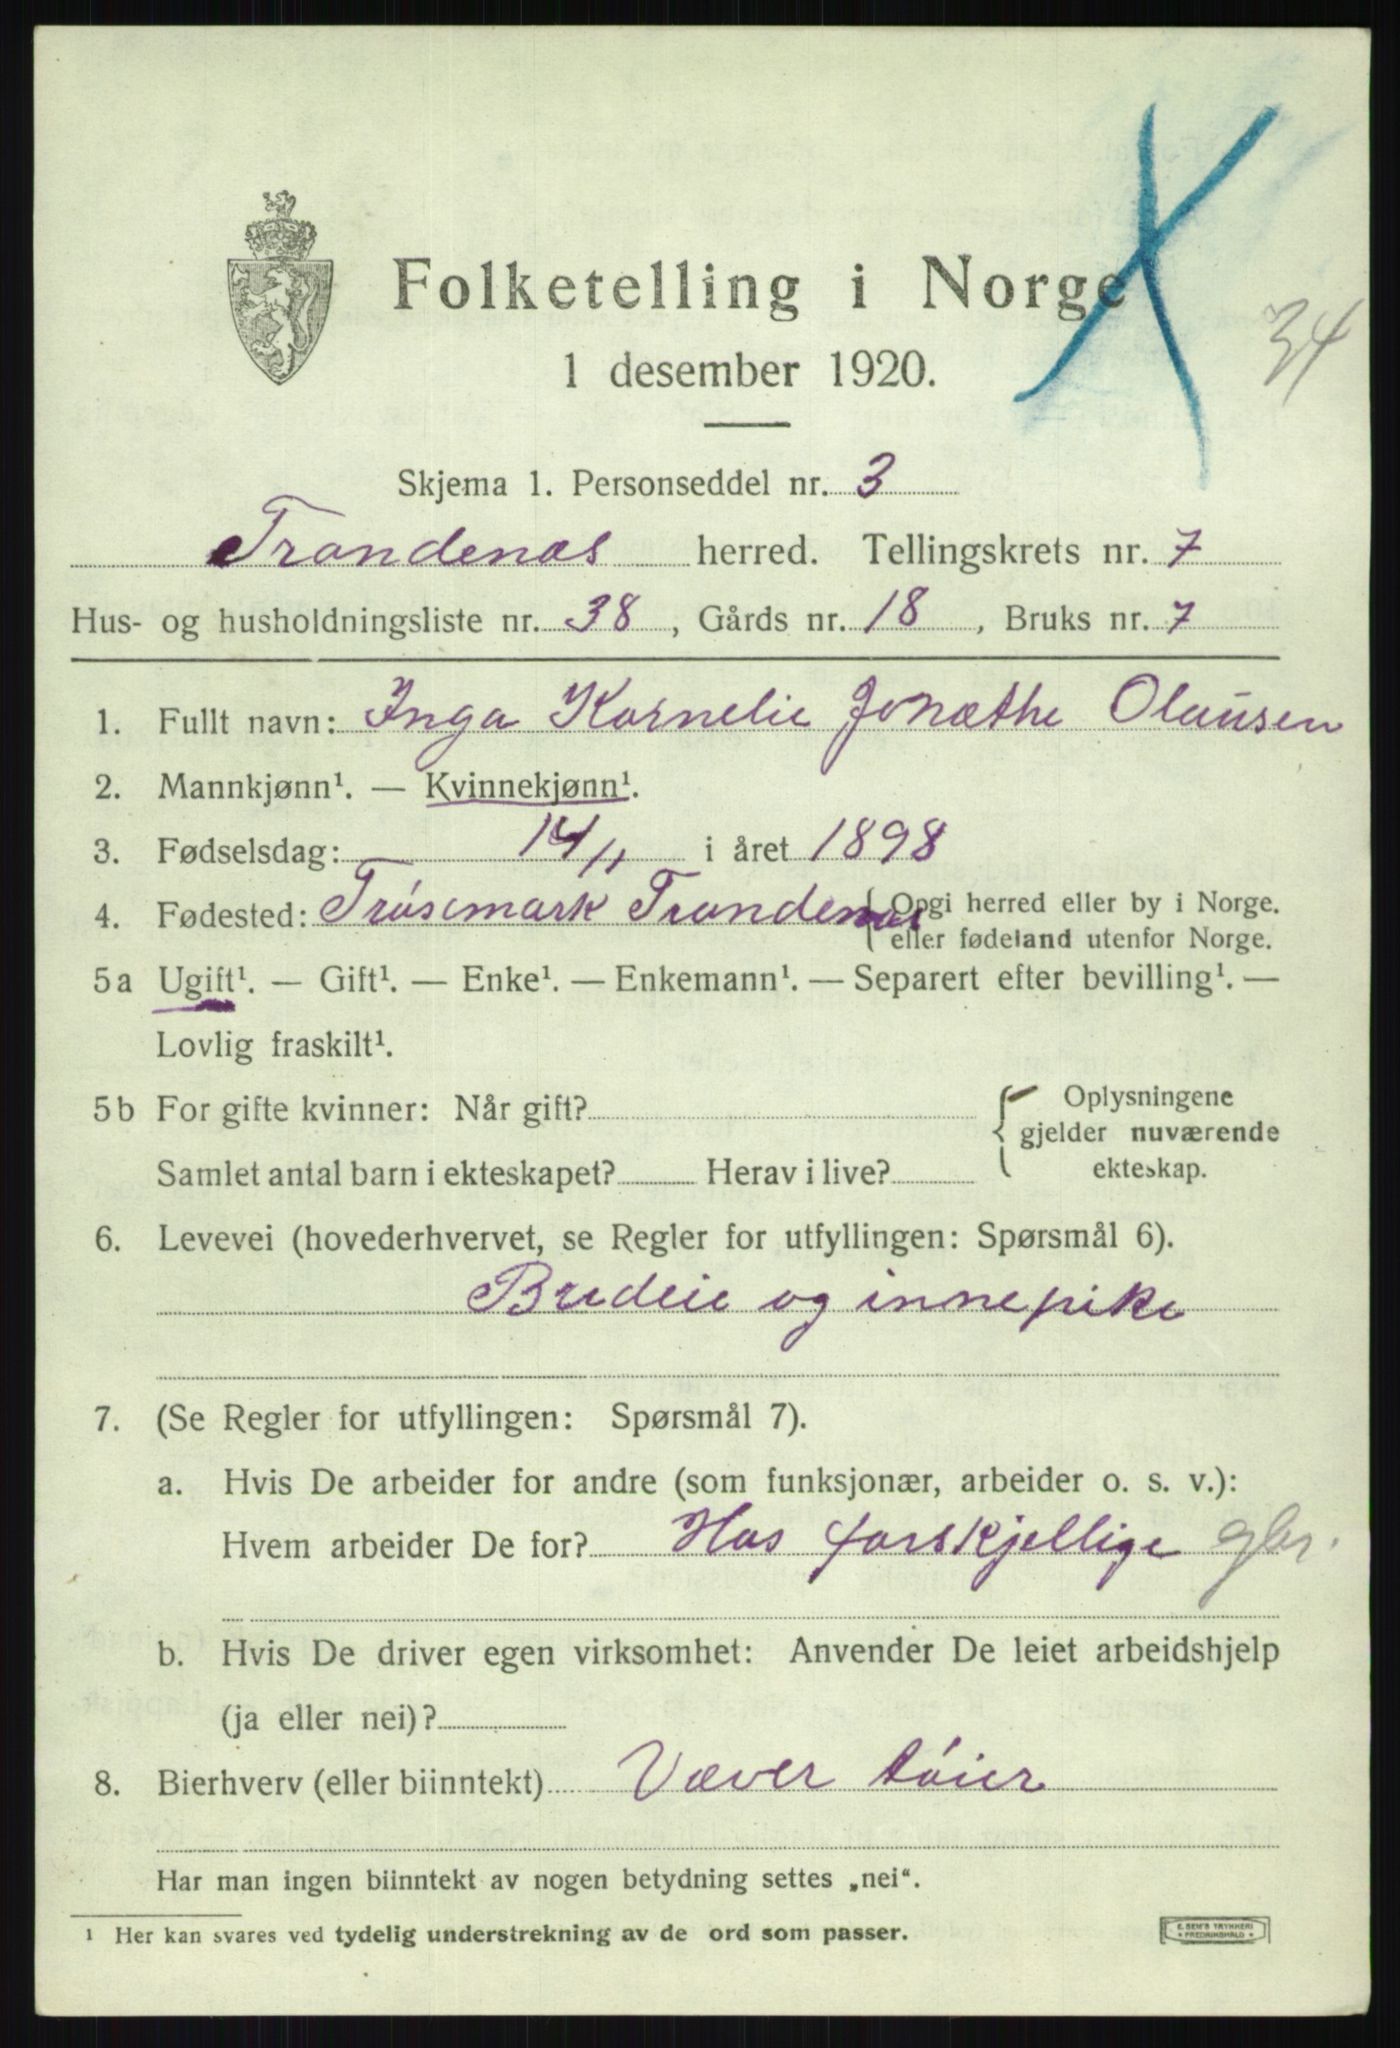 Folketelling i Norge
34
1 desember 1920.
Skjema 1. Personseddel nr. 3
Trondenæs herred. Tellingskrets nr. 7
Hus- og husholdningsliste nr. 38, Gårds nr. 18, Bruks nr. 7
1. Fullt navn: Inga Kornelie Jonæthe Olausen
2. Mannkjønn¹. — Kvinnekjønn¹.
3. Fødselsdag: 14/11 i året 1898
4. Fødested: Trøsemark Trondenæs { Opgi herred eller by i Norge.
eller fødeland utenfor Norge.
5a Ugift¹. — Gift¹. — Enke¹. — Enkemann¹. — Separert efter bevilling¹. —
Lovlig fraskilt¹.
5b For gifte kvinner: Når gift? { Oplysningene
gjelder nuværende
Samlet antal barn i ekteskapet? Herav i live? ekteskap.
6. Levevei (hovederhvervet, se Regler for utfyllingen: Spørsmål 6).
Budeie og innepike
7. (Se Regler for utfyllingen: Spørsmål 7).
a. Hvis De arbeider for andre (som funksjonær, arbeider o. s. v.):
Hvem arbeider De for? Hos forskjellige gbr.
b. Hvis De driver egen virksomhet: Anvender De leiet arbeidshjelp
(ja eller nei)?
8. Bierhverv (eller biinntekt) Væver tøier
Har man ingen biinntekt av nogen betydning settes „nei“.
¹ Her kan svares ved tydelig understrekning av de ord som passer.
E. SEM'S TRYKKERI
FREDRIKSHALD